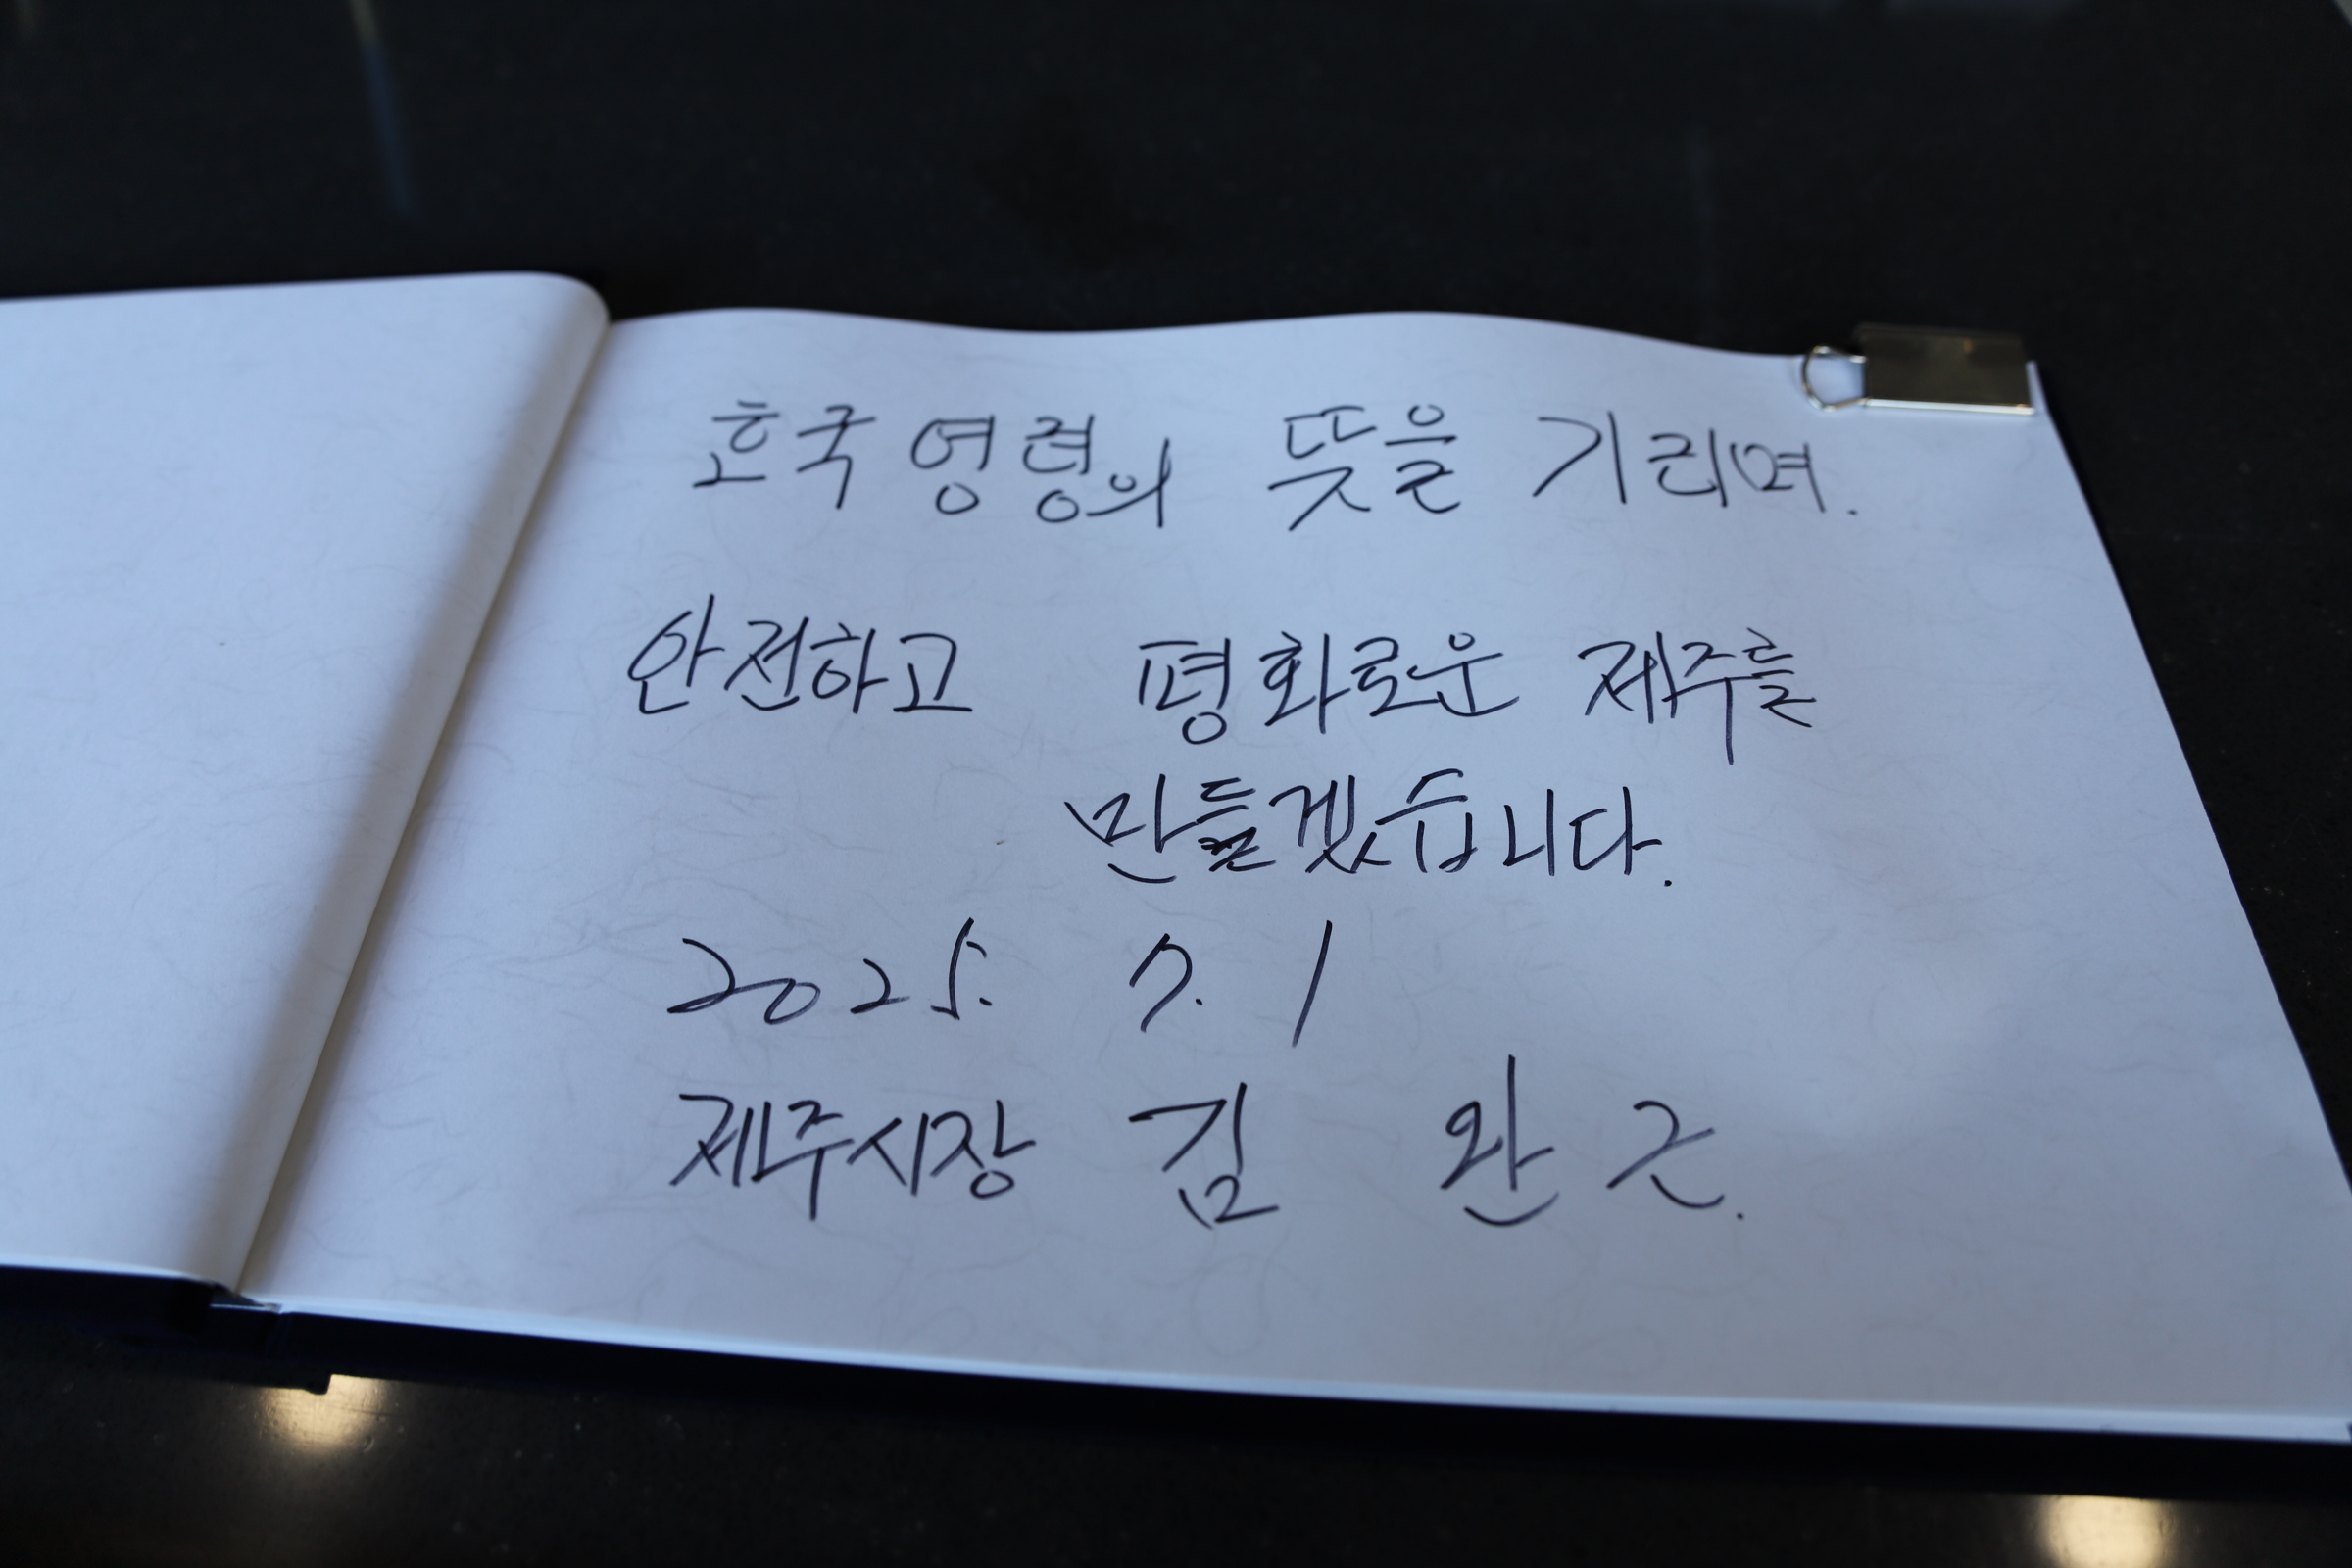 호국영령의 뜻을 기리며.
안전하고 평화로운 제주를
만들겠습니다.
2025. 7. 1
제주시장 김 완 근.